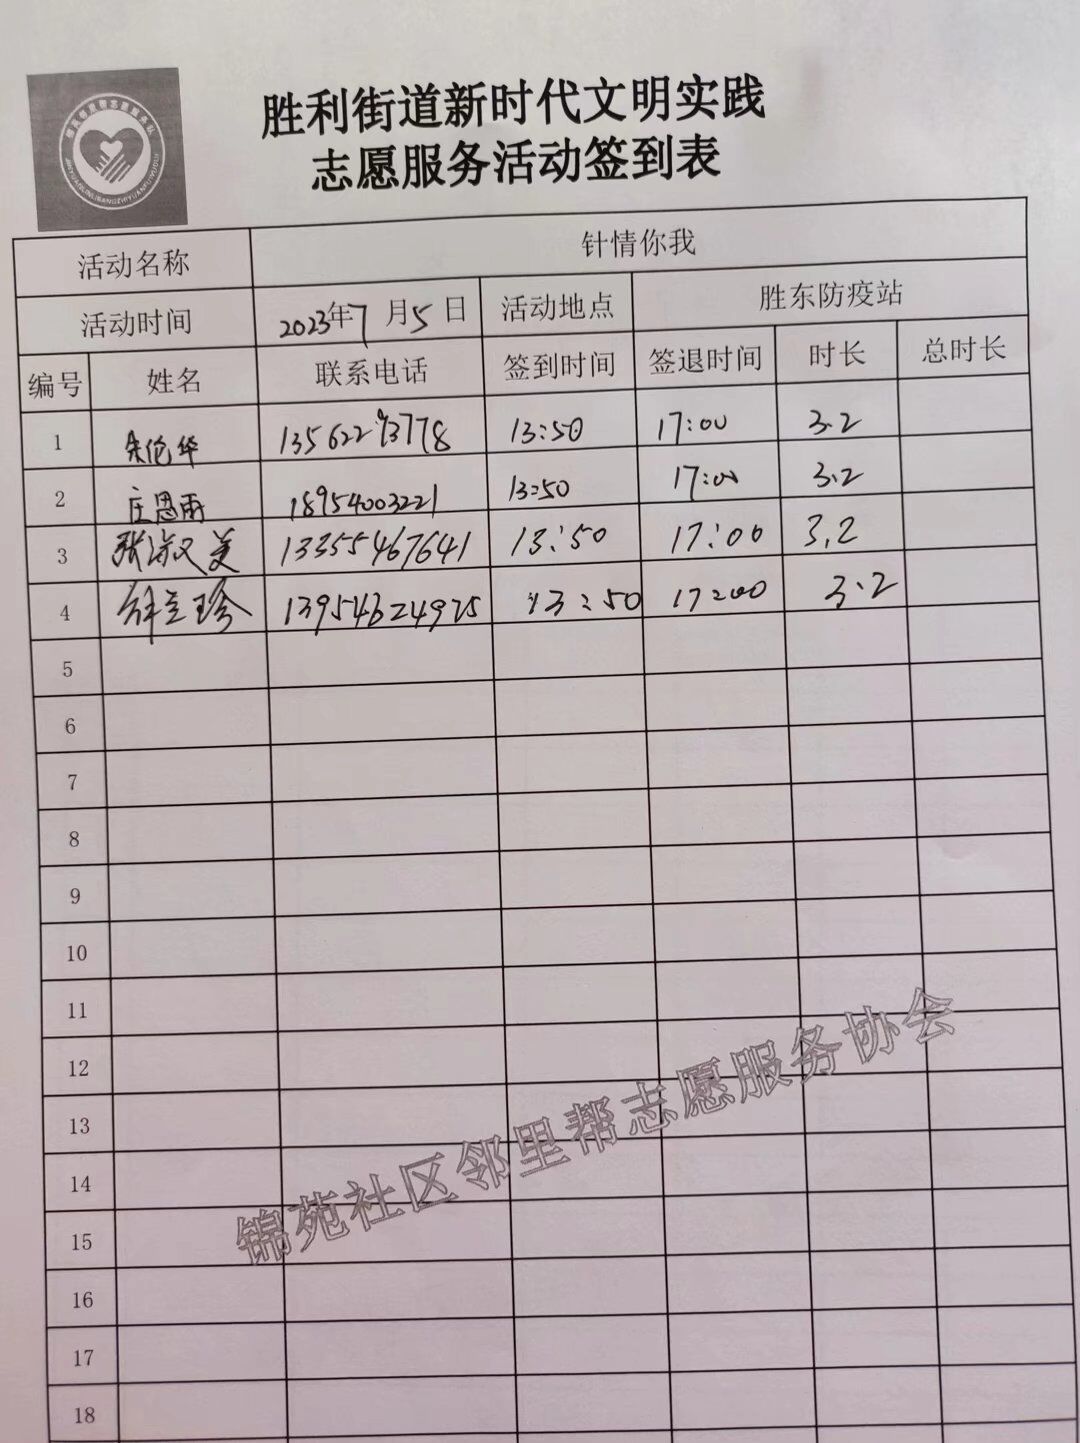 胜利街道新时代文明实践
志愿服务活动签到表
活动名称 针情你我
活动时间 2023年7月5日 活动地点 胜东防疫站
编号 姓名 联系电话 签到时间 签退时间 时长 总时长
1 13562293778 13:50 17:00 3.2
2 庄恩雨 18954003221 13:50 17:00 3.2
3 张淑美 13355467641 13:50 17:00 3.2
4 13954624975 13:50 17:00 3.2
5
6
7
8
9
10
11
12
13
14
15
16
17
18
锦苑社区邻里帮志愿服务协会